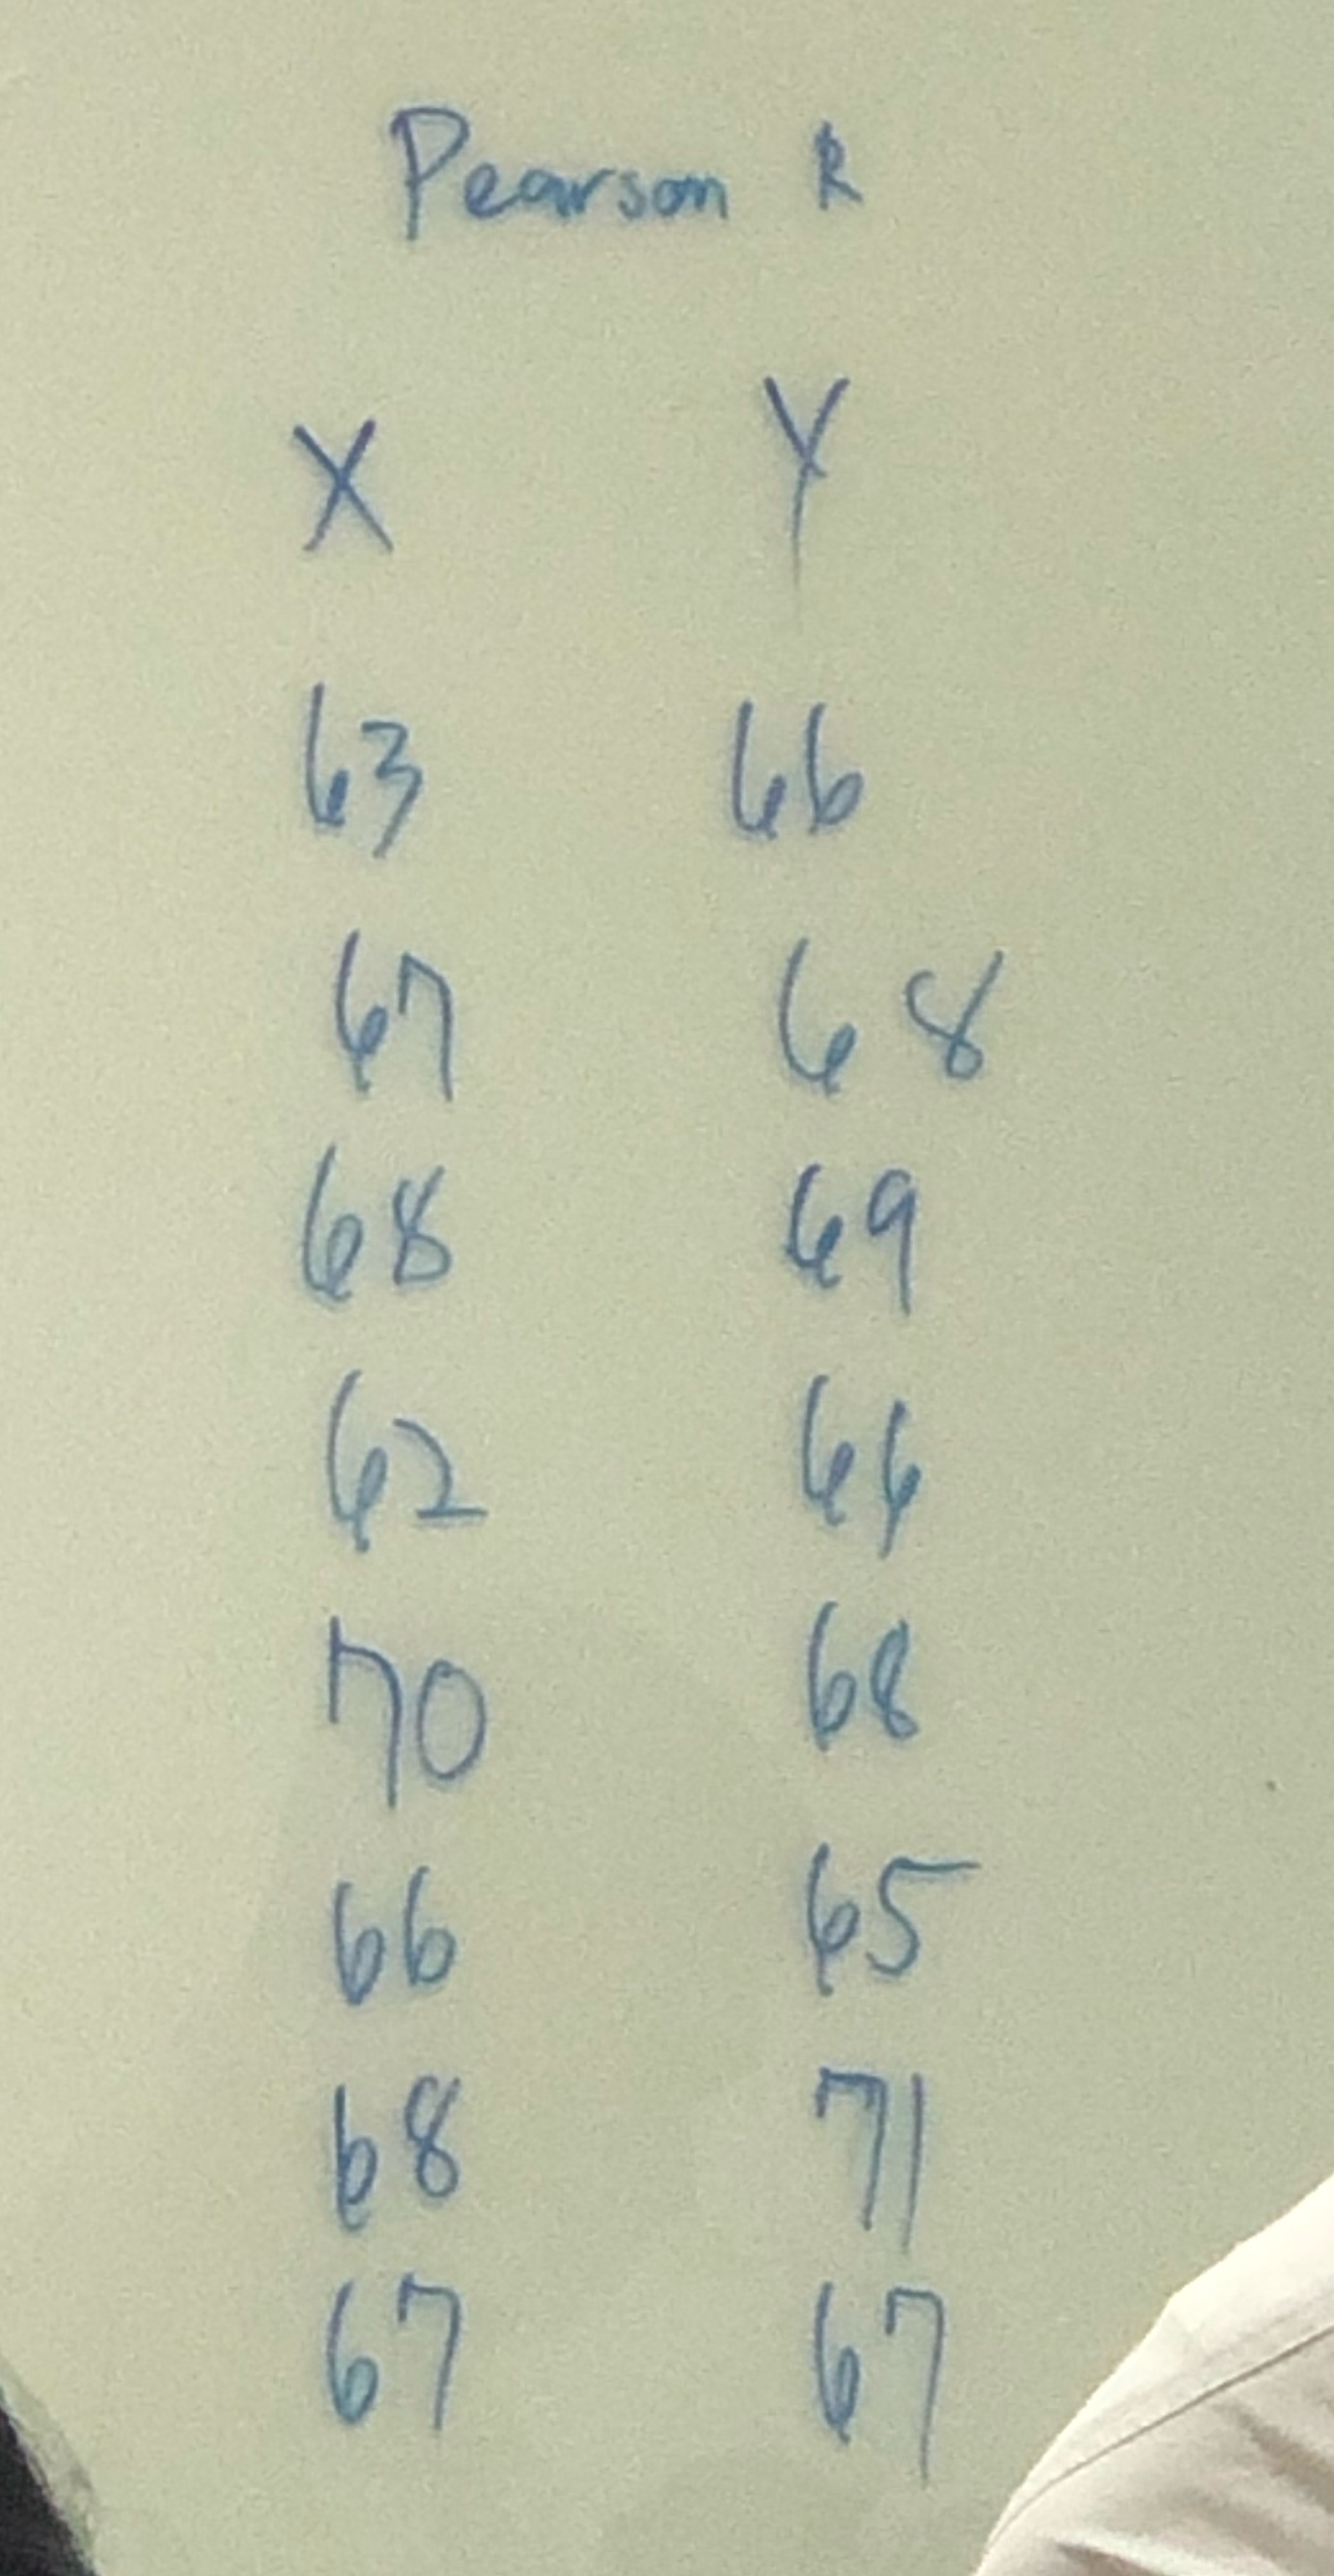 Pearson R
X Y
63 66
67 68
68 69
62 66
70 68
66 65
68 71
67 67